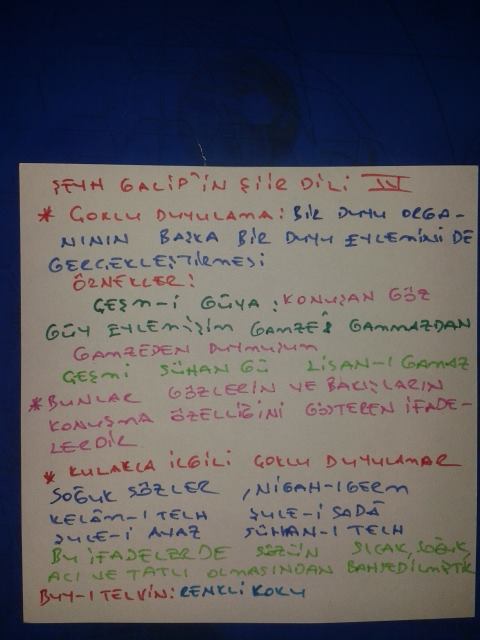 ŞEYH GALİP'İN ŞİİR DİLİ IV
* ÇOKLU DUYULAMA: BİR DUYU ORGA-
NININ BAŞKA BİR DUYU EYLEMİNİ DE
GERÇEKLEŞTİRMESİ
ÖRNEKLER:
ÇEŞM-İ GÛYA: KONUŞAN GÖZ
GÛY EYLEMİŞİM GAMZE GAMMAZDAN
GAMZEDEN DUYMUŞUM
ÇEŞMİ SÜHAN GÛ LİSAN-I GAMAZ
* BUNLAR GÖZLERİN VE BAKIŞLARIN
KONUŞMA ÖZELLİĞİNİ GÖSTEREN İFADE-
LERDİR
* KULAKLA İLGİLİ ÇOKLU DUYULAMAR
SOĞUK SÖZLER, NİGAH-I GERM
KELÂM-I TELH ŞULE-İ SADÂ
ŞULE-İ AVAZ SÜHAN-I TELH
BU İFADELERDE SÖZÜN SICAK, SOĞUK,
ACI VE TATLI OLMASINDAN BAHSEDİLMİŞTİR
BUY-I TELVİN: RENKLİ KOKU